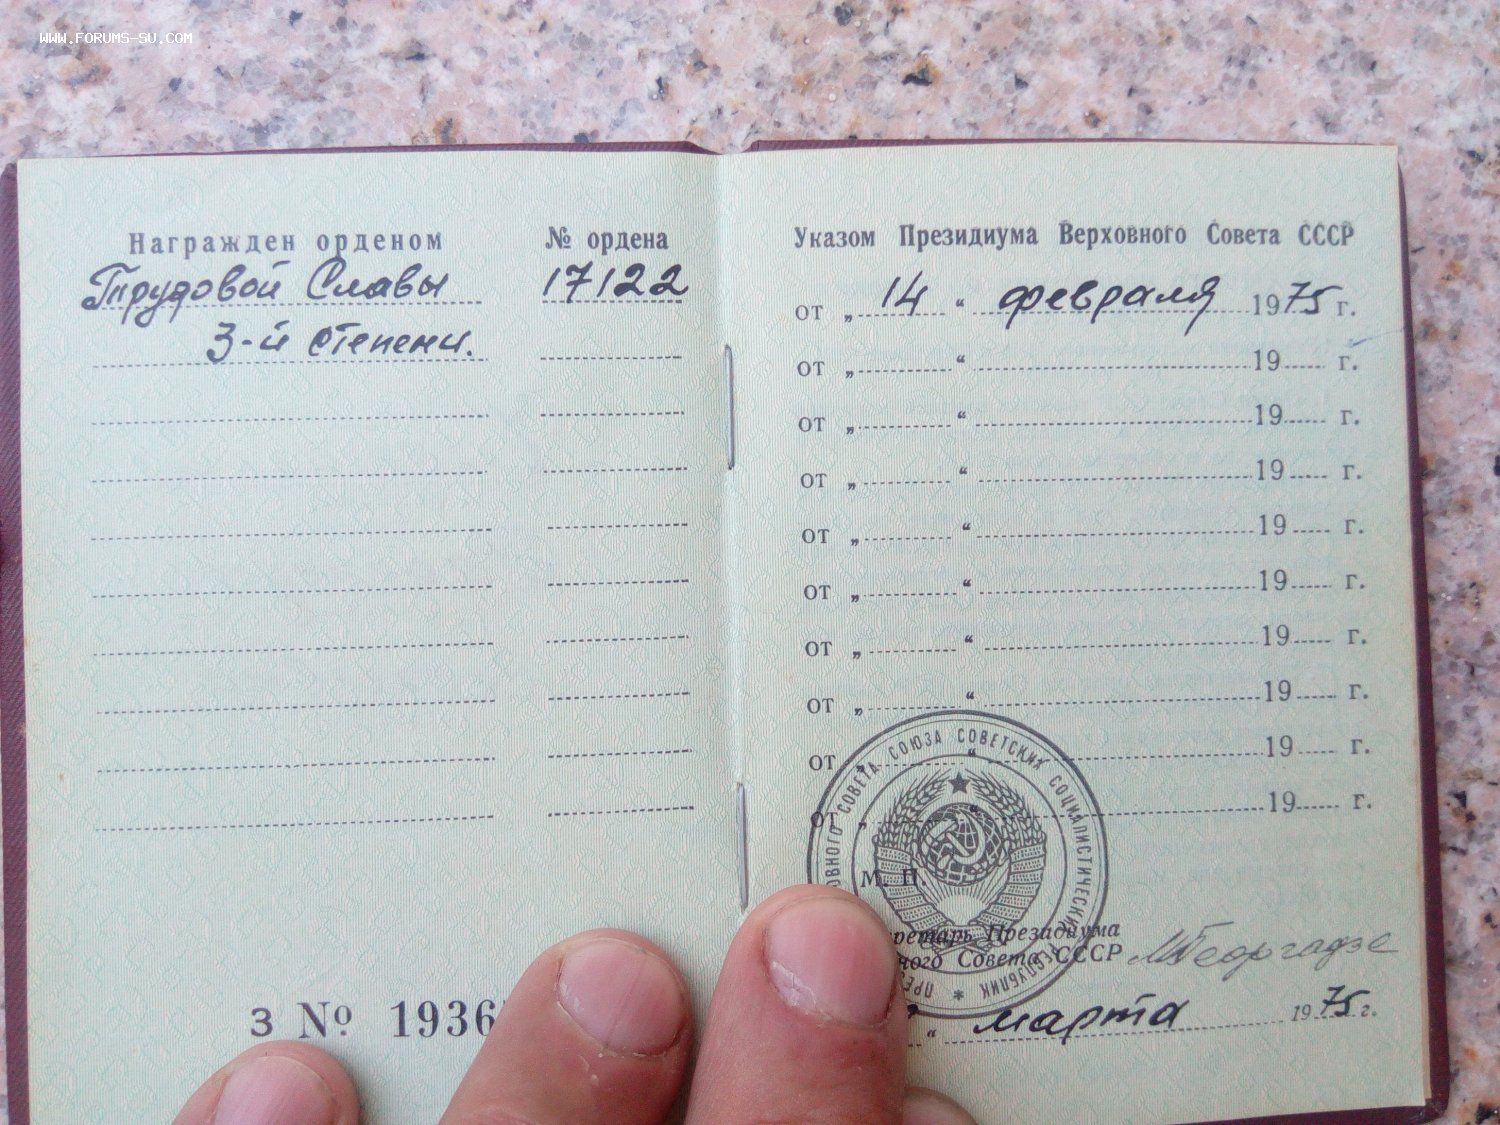 WWW.FORUMS-SU.COM
Награжден орденом
№ ордена
Трудовой Славы
17122
3-й степени.
З № 1936
Указом Президиума Верховного Совета СССР
от „ 14 “ февраля 1975 г.
от „ “ 19 г.
от „ “ 19 г.
от „ “ 19 г.
от „ “ 19 г.
от „ “ 19 г.
от „ “ 19 г.
от „ “ 19 г.
от „ “ 19 г.
от „ “ 19 г.
СОВЕТА СОЮЗА СОВЕТСКИХ СОЦИАЛИСТИЧЕСКИХ РЕСПУБЛИК
М. П.
Президиума
Совета СССР МГеоргадзе
“ марта 1975 г.